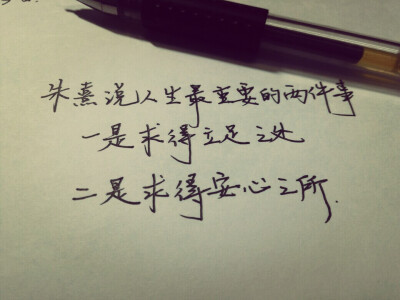 朱熹说人生最重要的两件事
一是求得立足之处
二是求得安心之所.